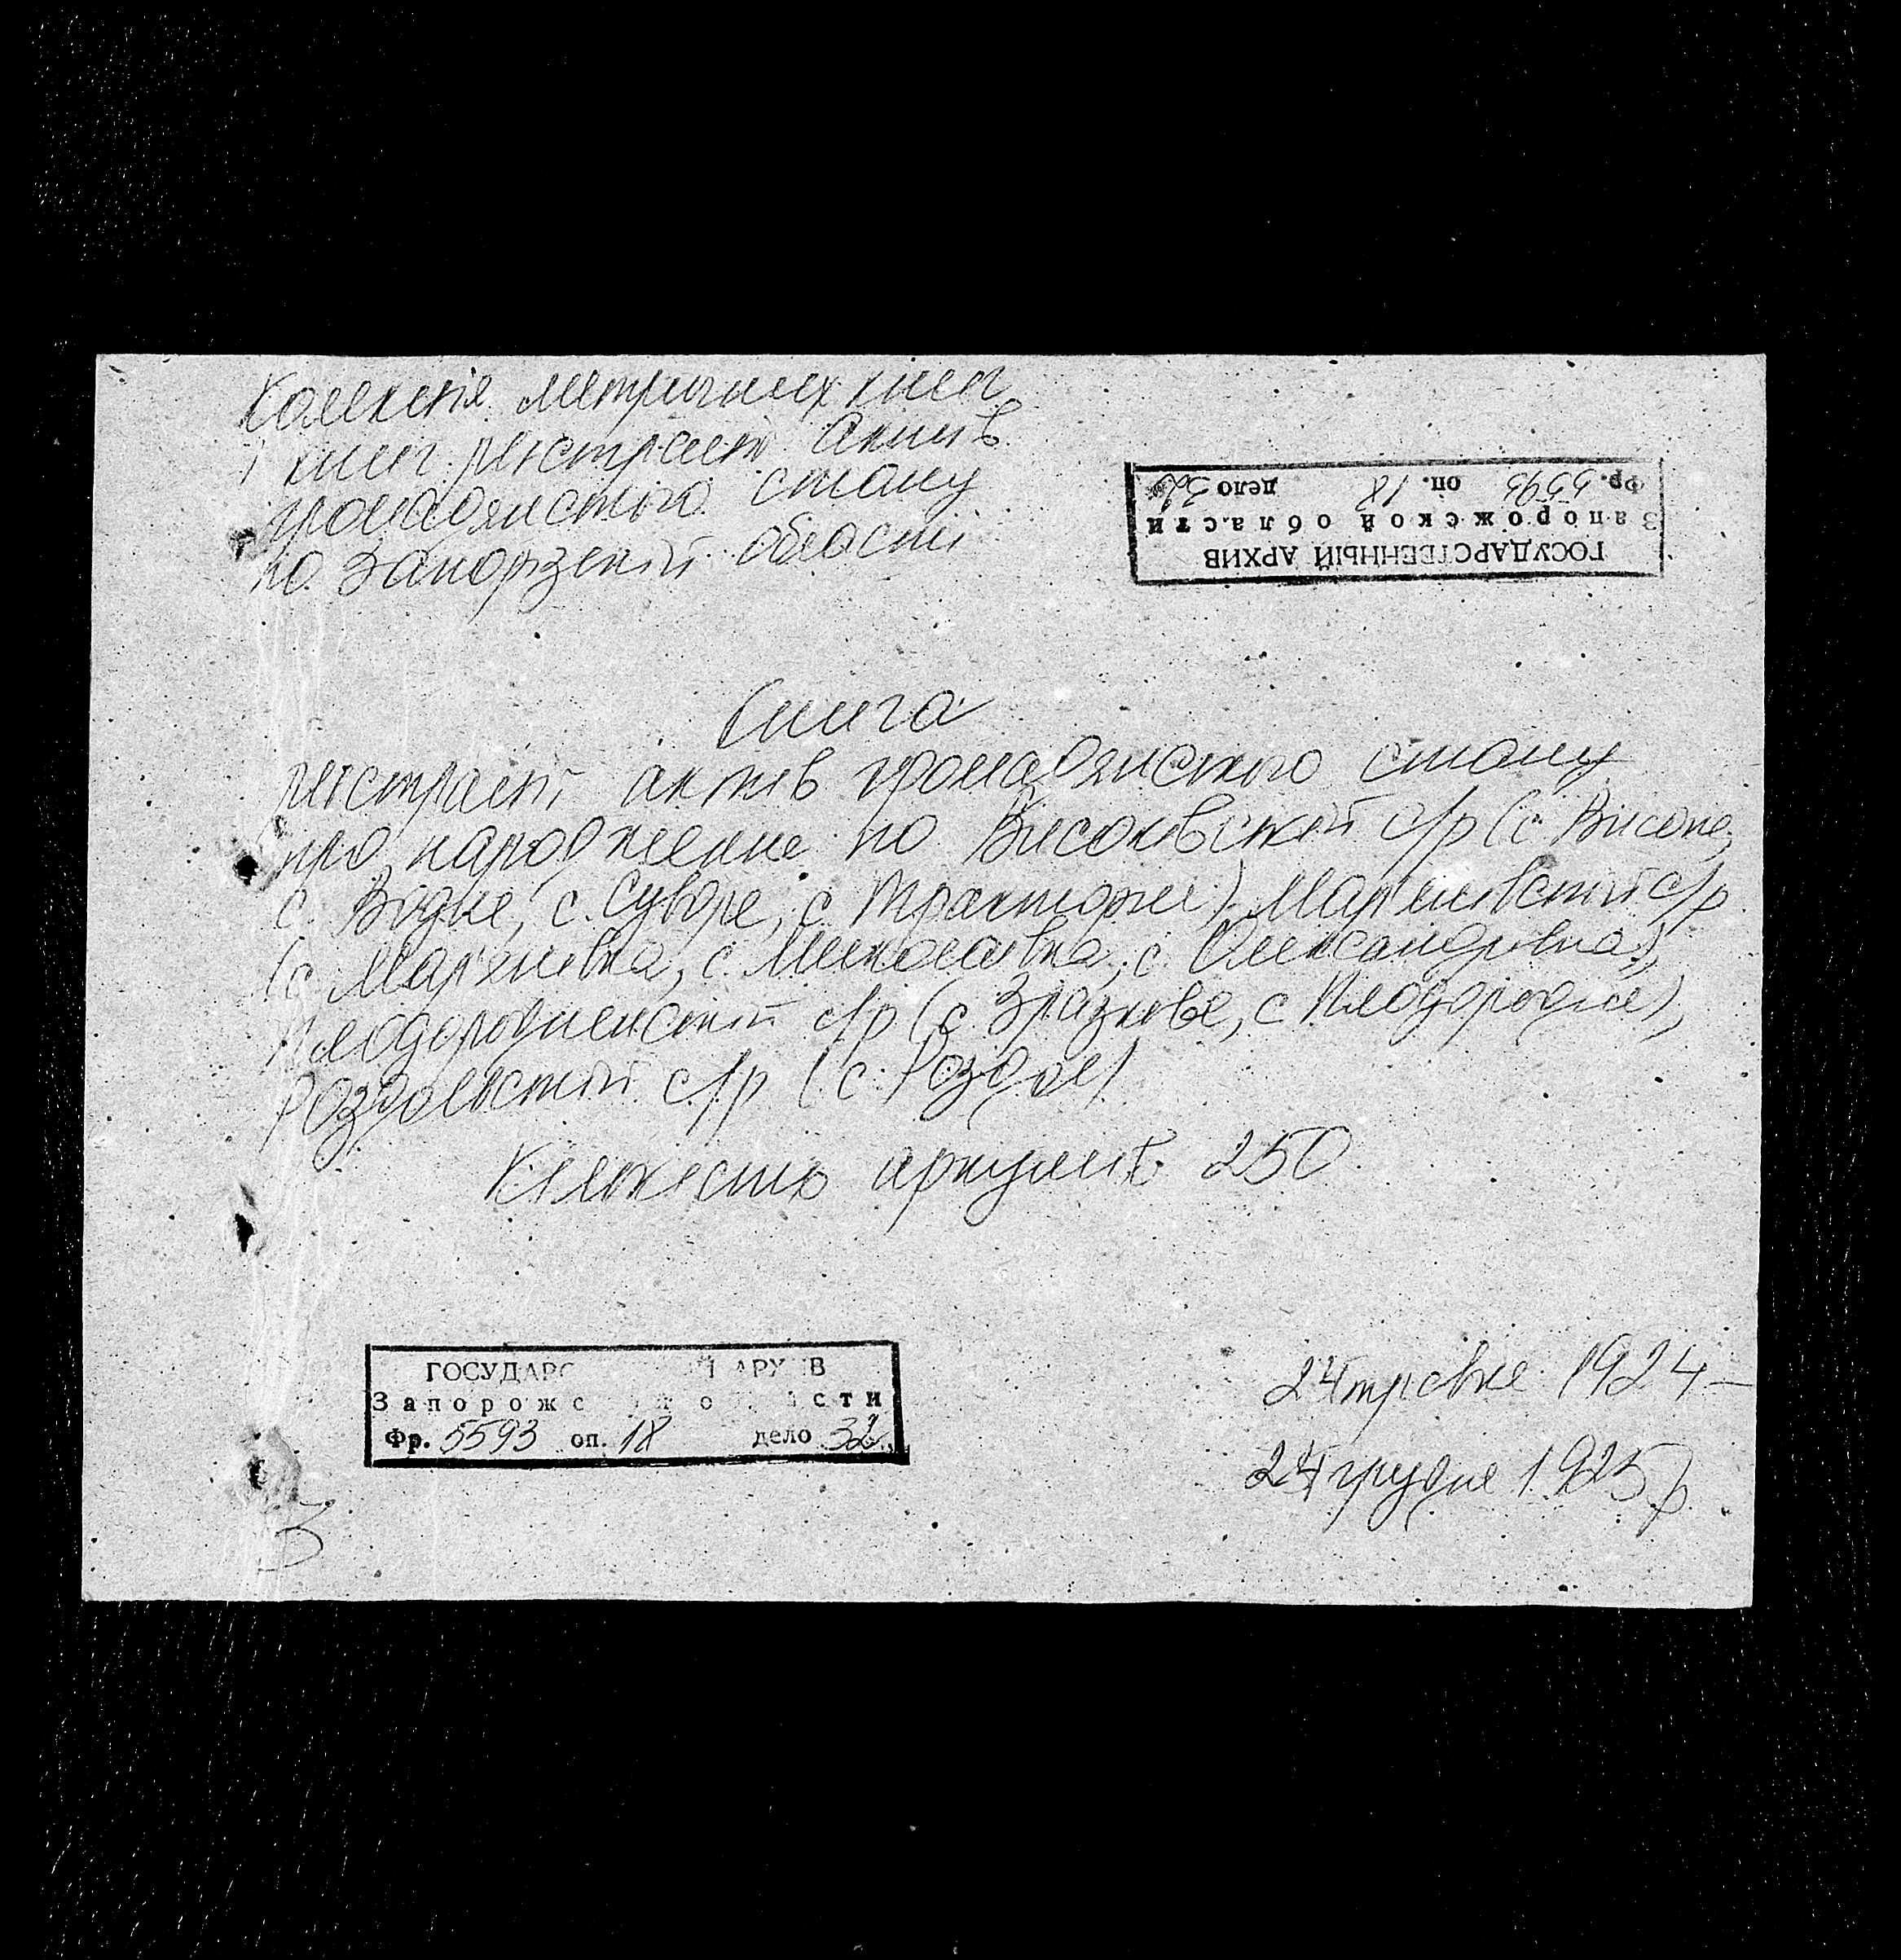 Колекція метричних книг
і книг реєстрації актів
громадянського стану
по Запорізькій області
ГОСУДАРСТВЕННЫЙ АРХИВ
Запорожской области
Фр. 5593 оп. 18 дело 32
Книга
реєстрації актів громадянського стану
про народження по Високівській с/р (с. Високе,
с. Водне, с. Суворе, с. Тракторне), Мар'янівській с/р
(с. Мар'янівка, с. Миколаївка, с. Олександрівка),
Плодородненській с/р (с. Зразкове, с. Плодородне),
Роздольській с/р (с. Роздол)
Кількість аркушів 250
ГОСУДАРС Й АРХИВ
Запорожс о сти
Фр. 5593 оп. 18 дело 32
24 травня 1924 –
24 грудня 1925 р.
3